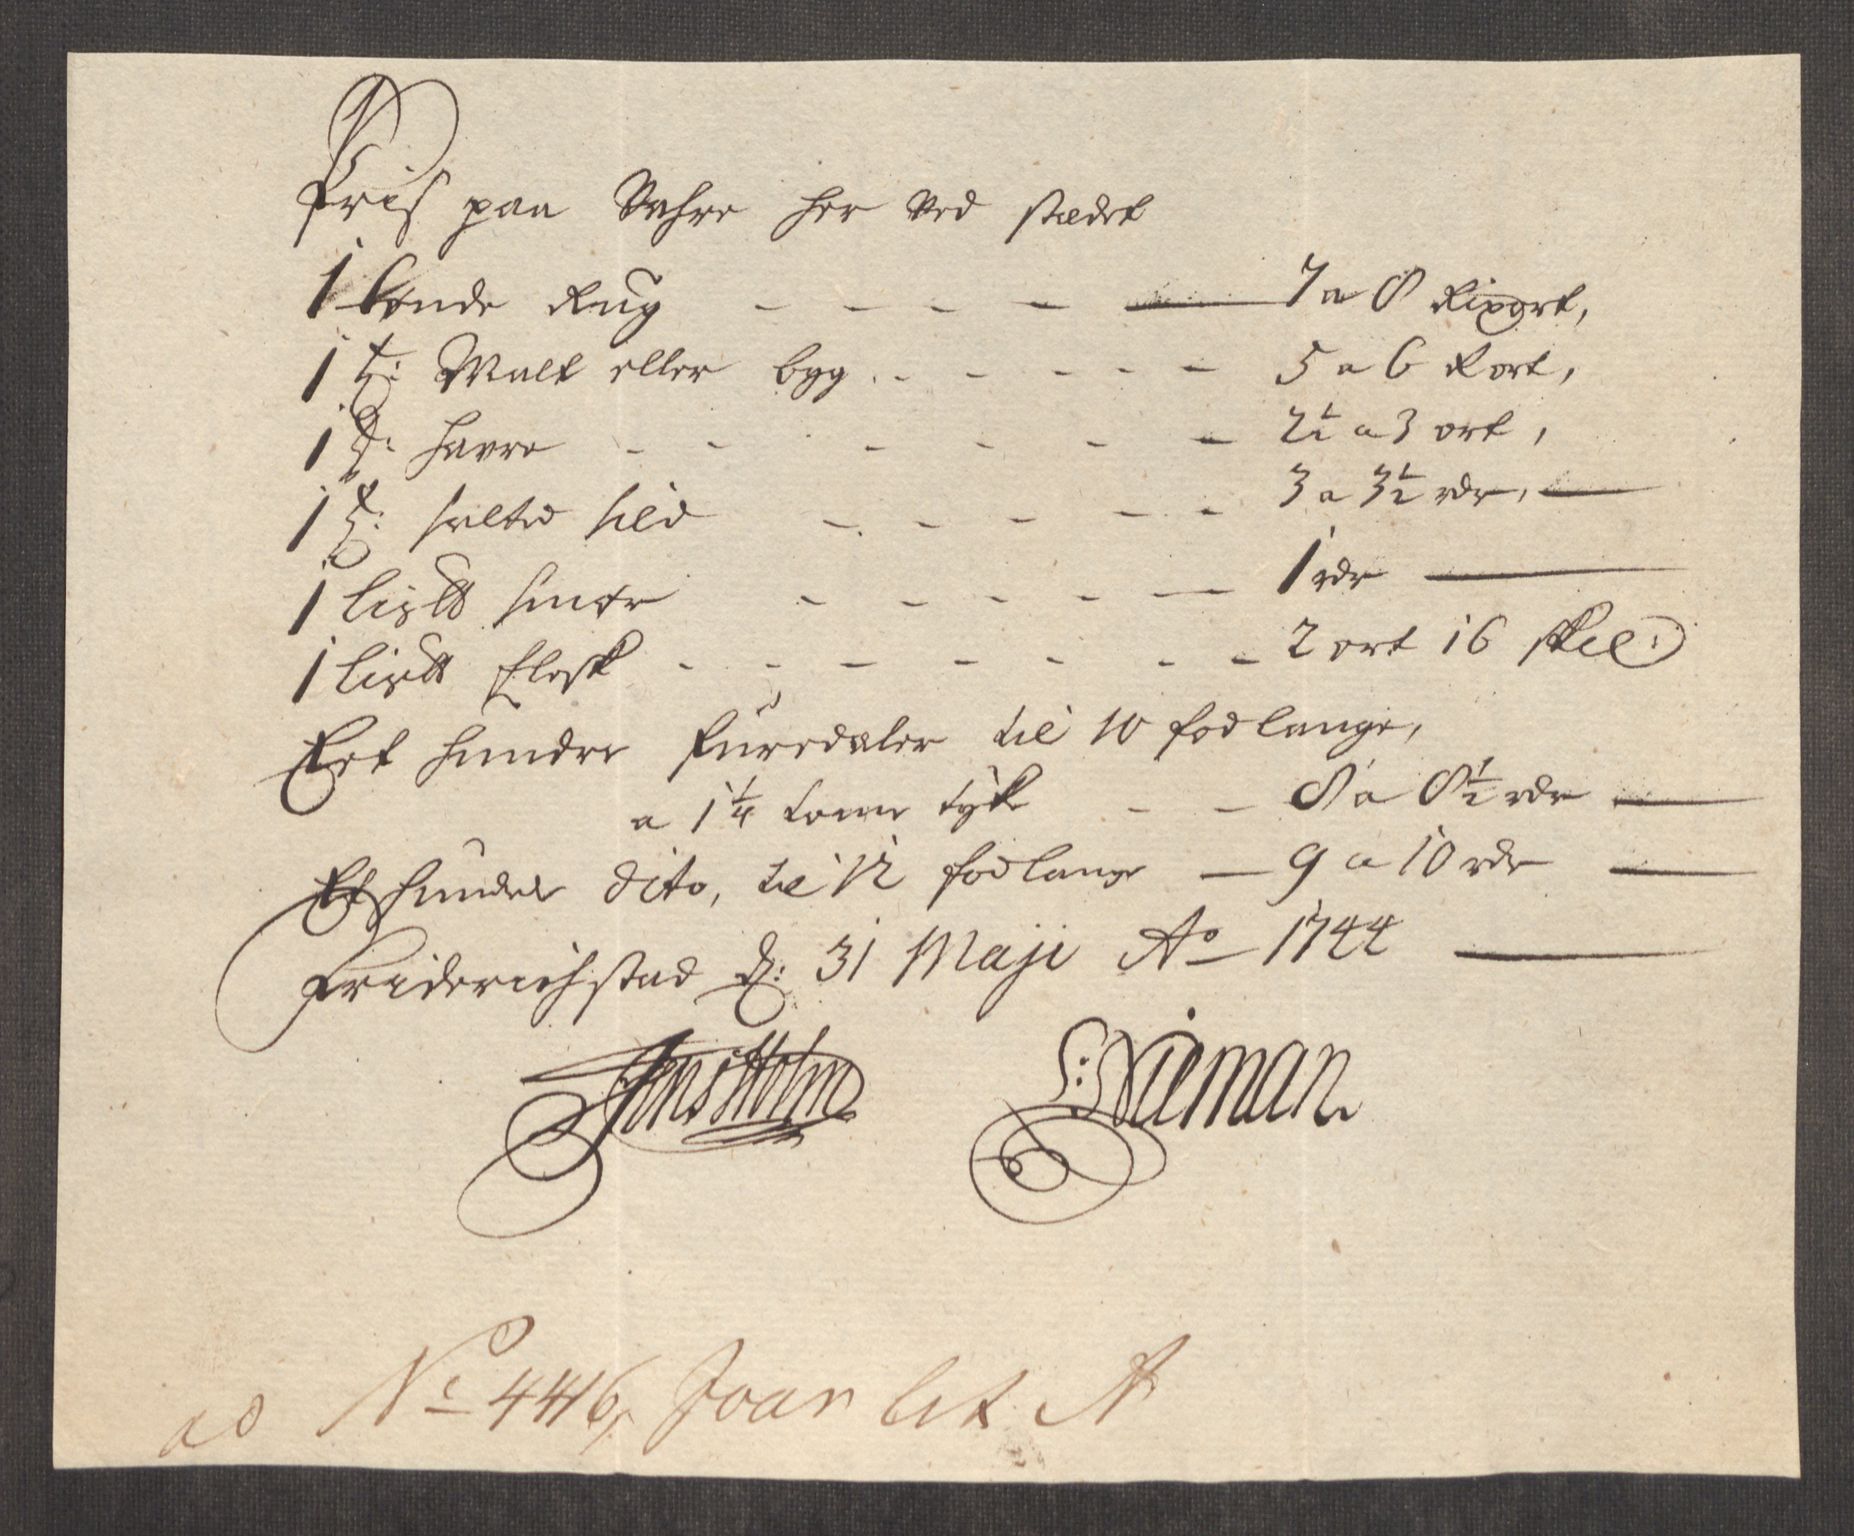 Pris paa Vahre her ved stædet
1 tønde Rug - - - - — 7 a 8 Rixort,
1 t: Malt eller byg - - - - - 5 a 6 Rort,
1 d: Havre - - - - - - 2½ a 3 ort,
1 t: salted sild - - - - - 3 a 3½ rdr, —
1 lis℔ smør - - - - — 1 rdr —
1 lis℔ flesk - - - - - - - 2 ort 16 skil:
Eet hundre furedæler til 10 fod lange,
a 1¼ tome tyk - - 8 a 8½ rdr —
Et hundre dito, til 12 fod lange — 9 a 10 rdr —
Friderichstad d: 31 Maji Ao 1744 —
Jens Holm
S: Nieman
ad No 4416, Joar lit A